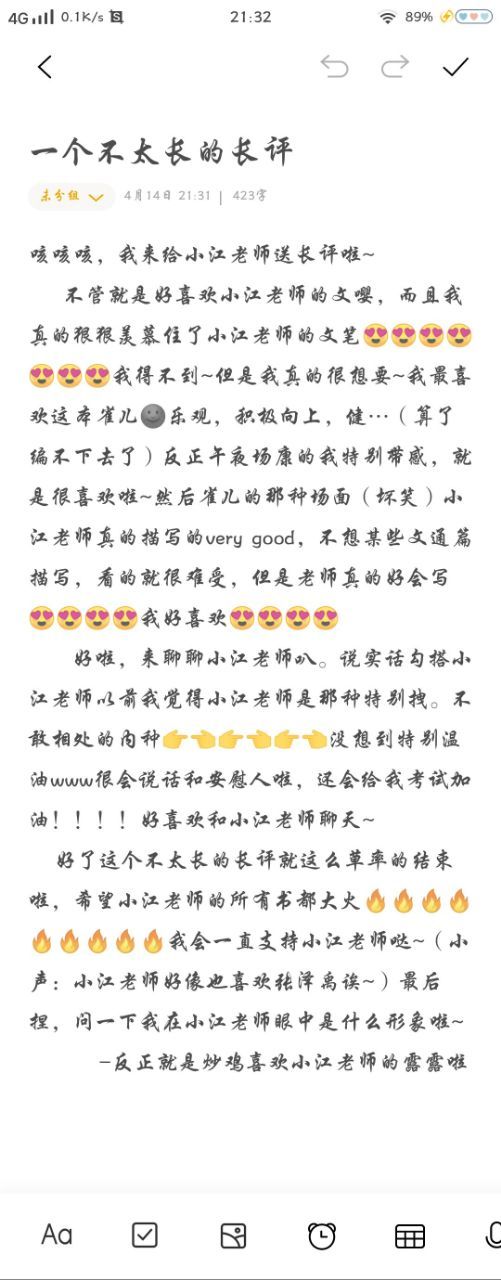 4G 0.1K/s 21:32 89%
一个不太长的长评
未分组 4月14日 21:31 | 423字
咳咳咳，我来给小江老师送长评啦~
不管就是好喜欢小江老师的文嘤，而且我
真的狠狠羡慕住了小江老师的文笔😍😍😍😍
😍😍😍我得不到~但是我真的很想要~我最喜
欢这本雀儿🌚乐观，积极向上，健…（算了
编不下去了）反正午夜场康的我特别带感，就
是很喜欢啦~然后雀儿的那种场面（坏笑）小
江老师真的描写的very good，不想某些文通篇
描写，看的就很难受，但是老师真的好会写
😍😍😍😍我好喜欢😍😍😍😍
好啦，来聊聊小江老师叭。说实话勾搭小
江老师以前我觉得小江老师是那种特别拽。不
敢相处的内种👉👈👉👈👉👈没想到特别温
油www很会说话和安慰人啦，还会给我考试加
油！！！！好喜欢和小江老师聊天~
好了这个不太长的长评就这么草率的结束
啦，希望小江老师的所有书都大火🔥🔥🔥🔥
🔥🔥🔥🔥🔥我会一直支持小江老师哒~（小
声：小江老师好像也喜欢张泽禹诶~）最后
捏，问一下我在小江老师眼中是什么形象啦~
-反正就是炒鸡喜欢小江老师的露露啦
Aa